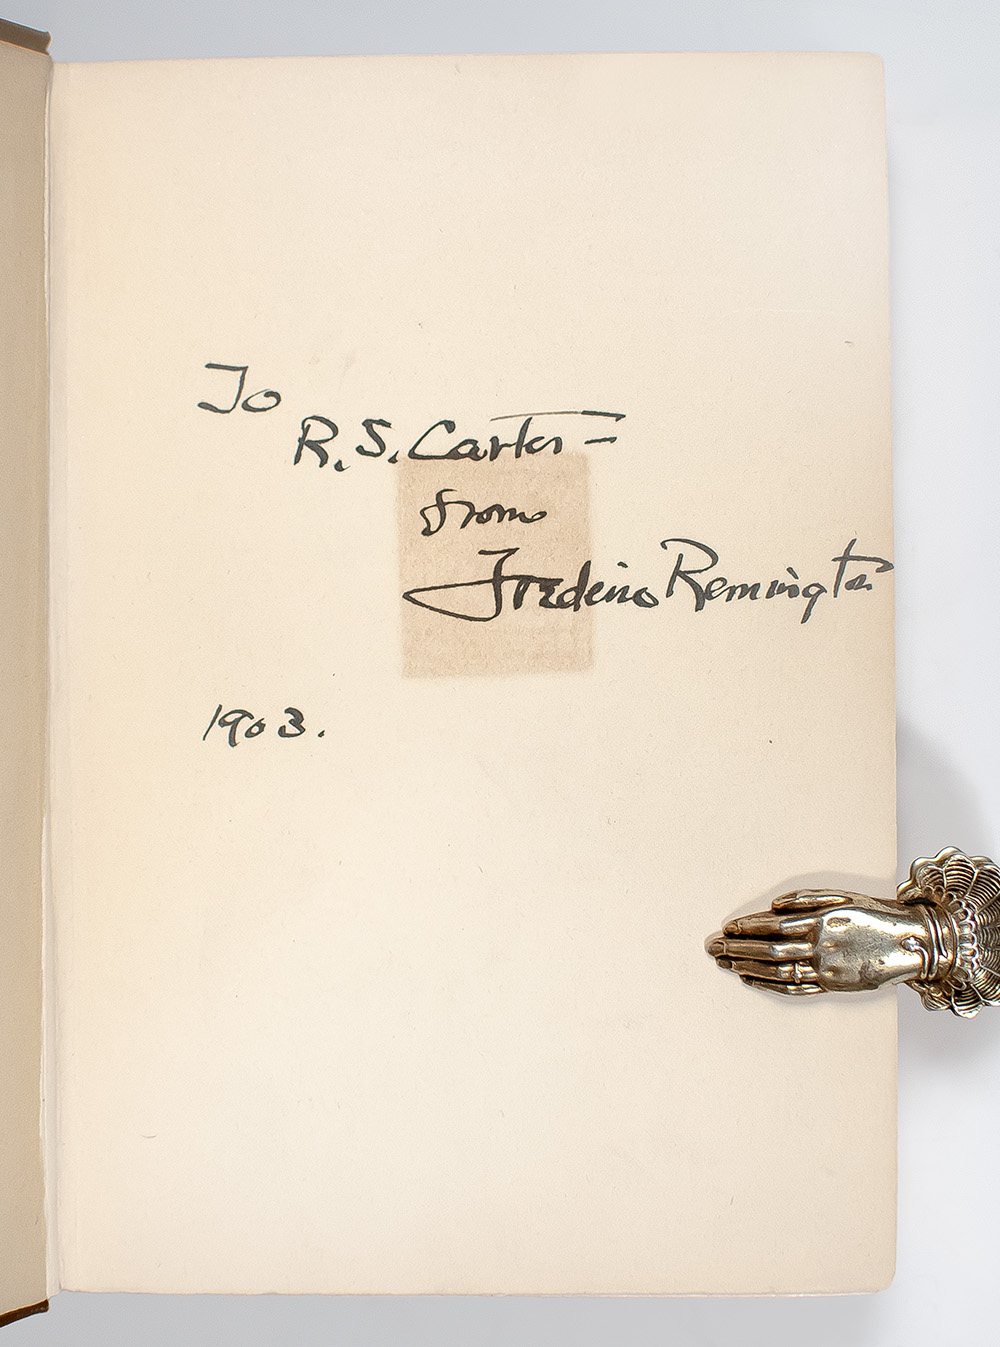 To
R. S. Carter –
from
Frederic Remington
1903.